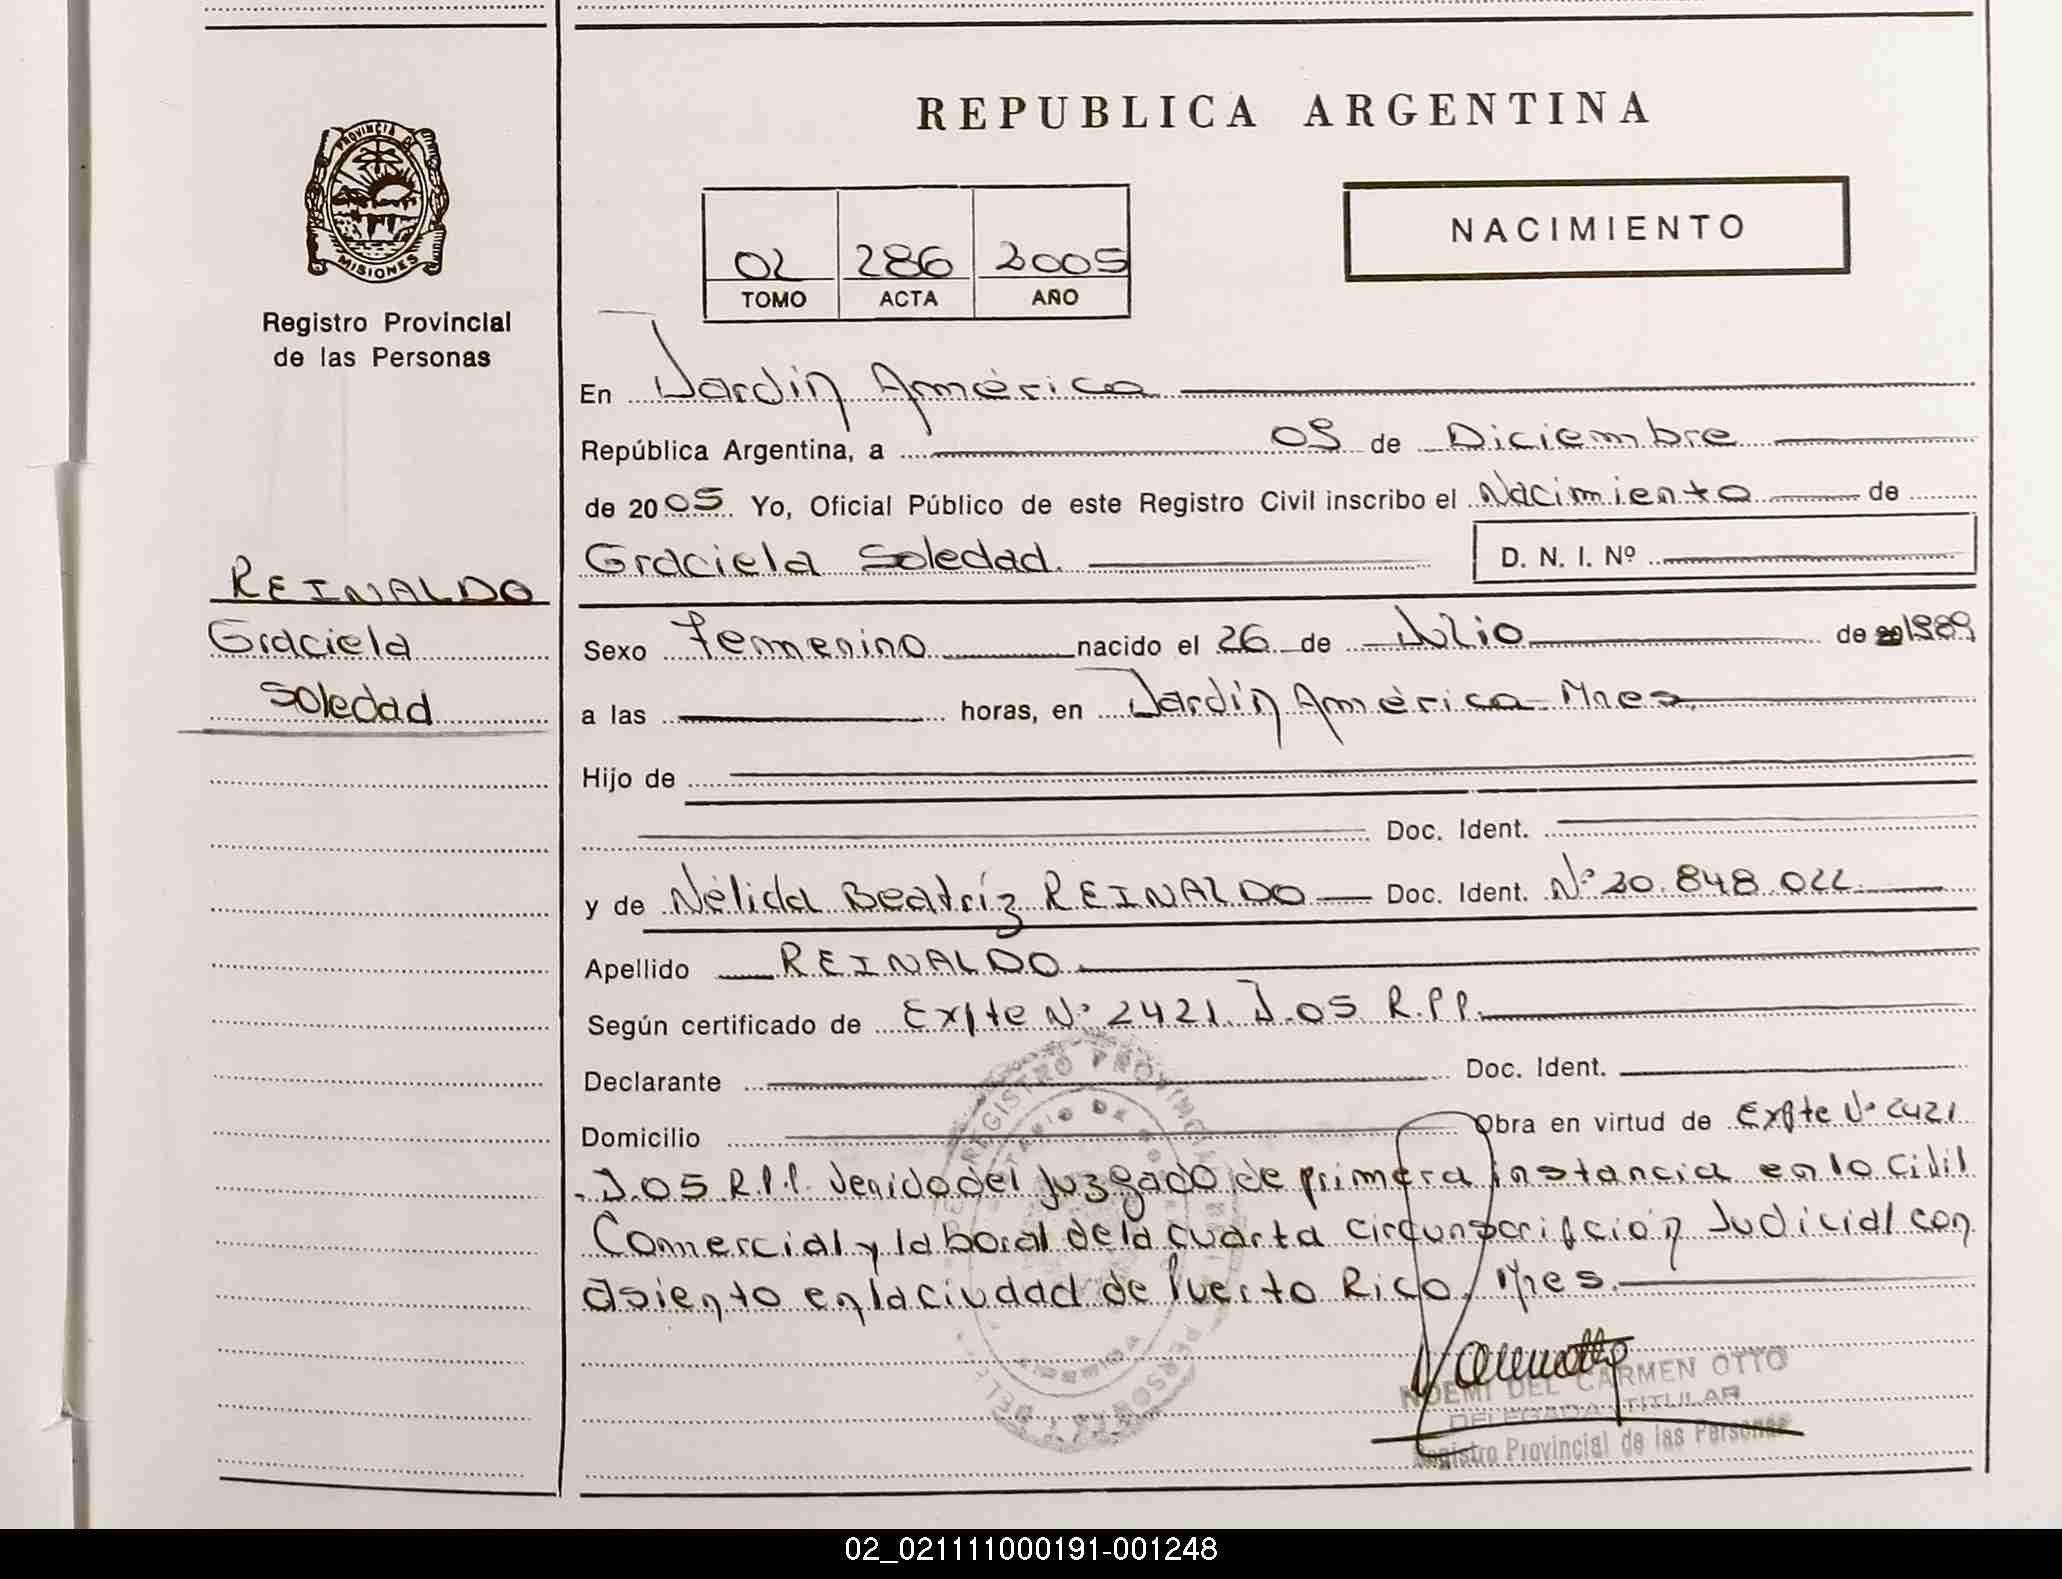 REPUBLICA ARGENTINA
PROVINCIA DE
MISIONES
Registro Provincial
de las Personas
NACIMIENTO
02 286 2005
TOMO ACTA AÑO
En Jardín América
República Argentina, a 05 de Diciembre
de 2005. Yo, Oficial Público de este Registro Civil inscribo el Nacimiento de
Graciela Soledad. D. N. I. Nº
REINALDO
Graciela
Soledad
Sexo Femenino nacido el 26 de Julio de 1989
a las horas, en Jardín América - Mnes.
Hijo de
Doc. Ident.
y de Nélida Beatríz REINALDO Doc. Ident. Nº 20.848.022
Apellido REINALDO
Según certificado de Expte Nº 2421. J.05 R.P.P.
Declarante Doc. Ident.
Domicilio Obra en virtud de Expte Nº 2421
J.05 R.P.P. Venido del Juzgado de primera instancia en lo Civil
Comercial y laboral de la cuarta circunscripción Judicial con
asiento en la ciudad de Puerto Rico, Mnes.
NOEMI DEL CARMEN OTTO
DELEGADA TITULAR
Registro Provincial de las Personas
02_021111000191-001248